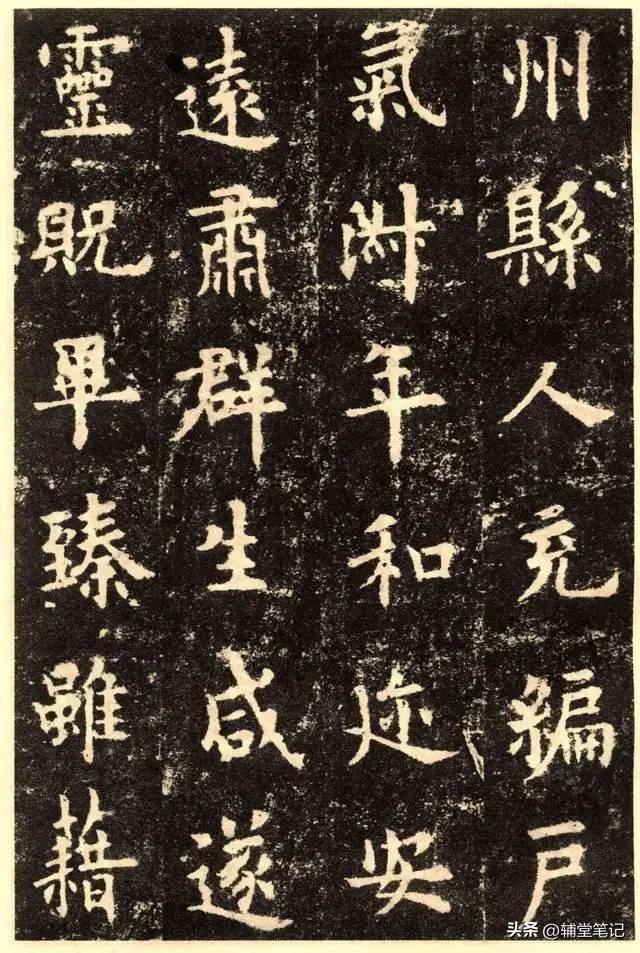 州縣人充編戶
氣淑年和迩安
遠肅群生咸遂
靈貺畢臻雖藉
头条 @辅堂笔记